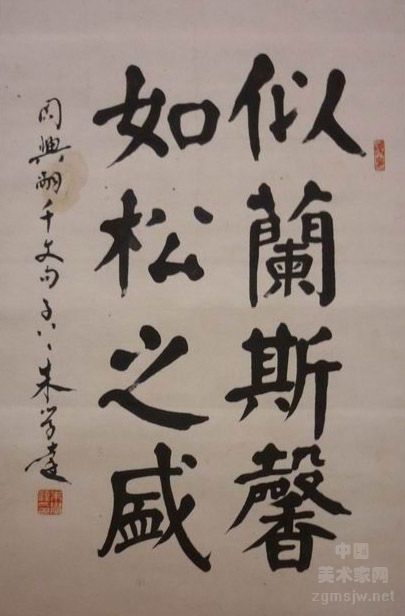 似蘭斯馨
如松之盛
周興嗣千文句 朱學達
中国
美术家网
zgmsjw.net